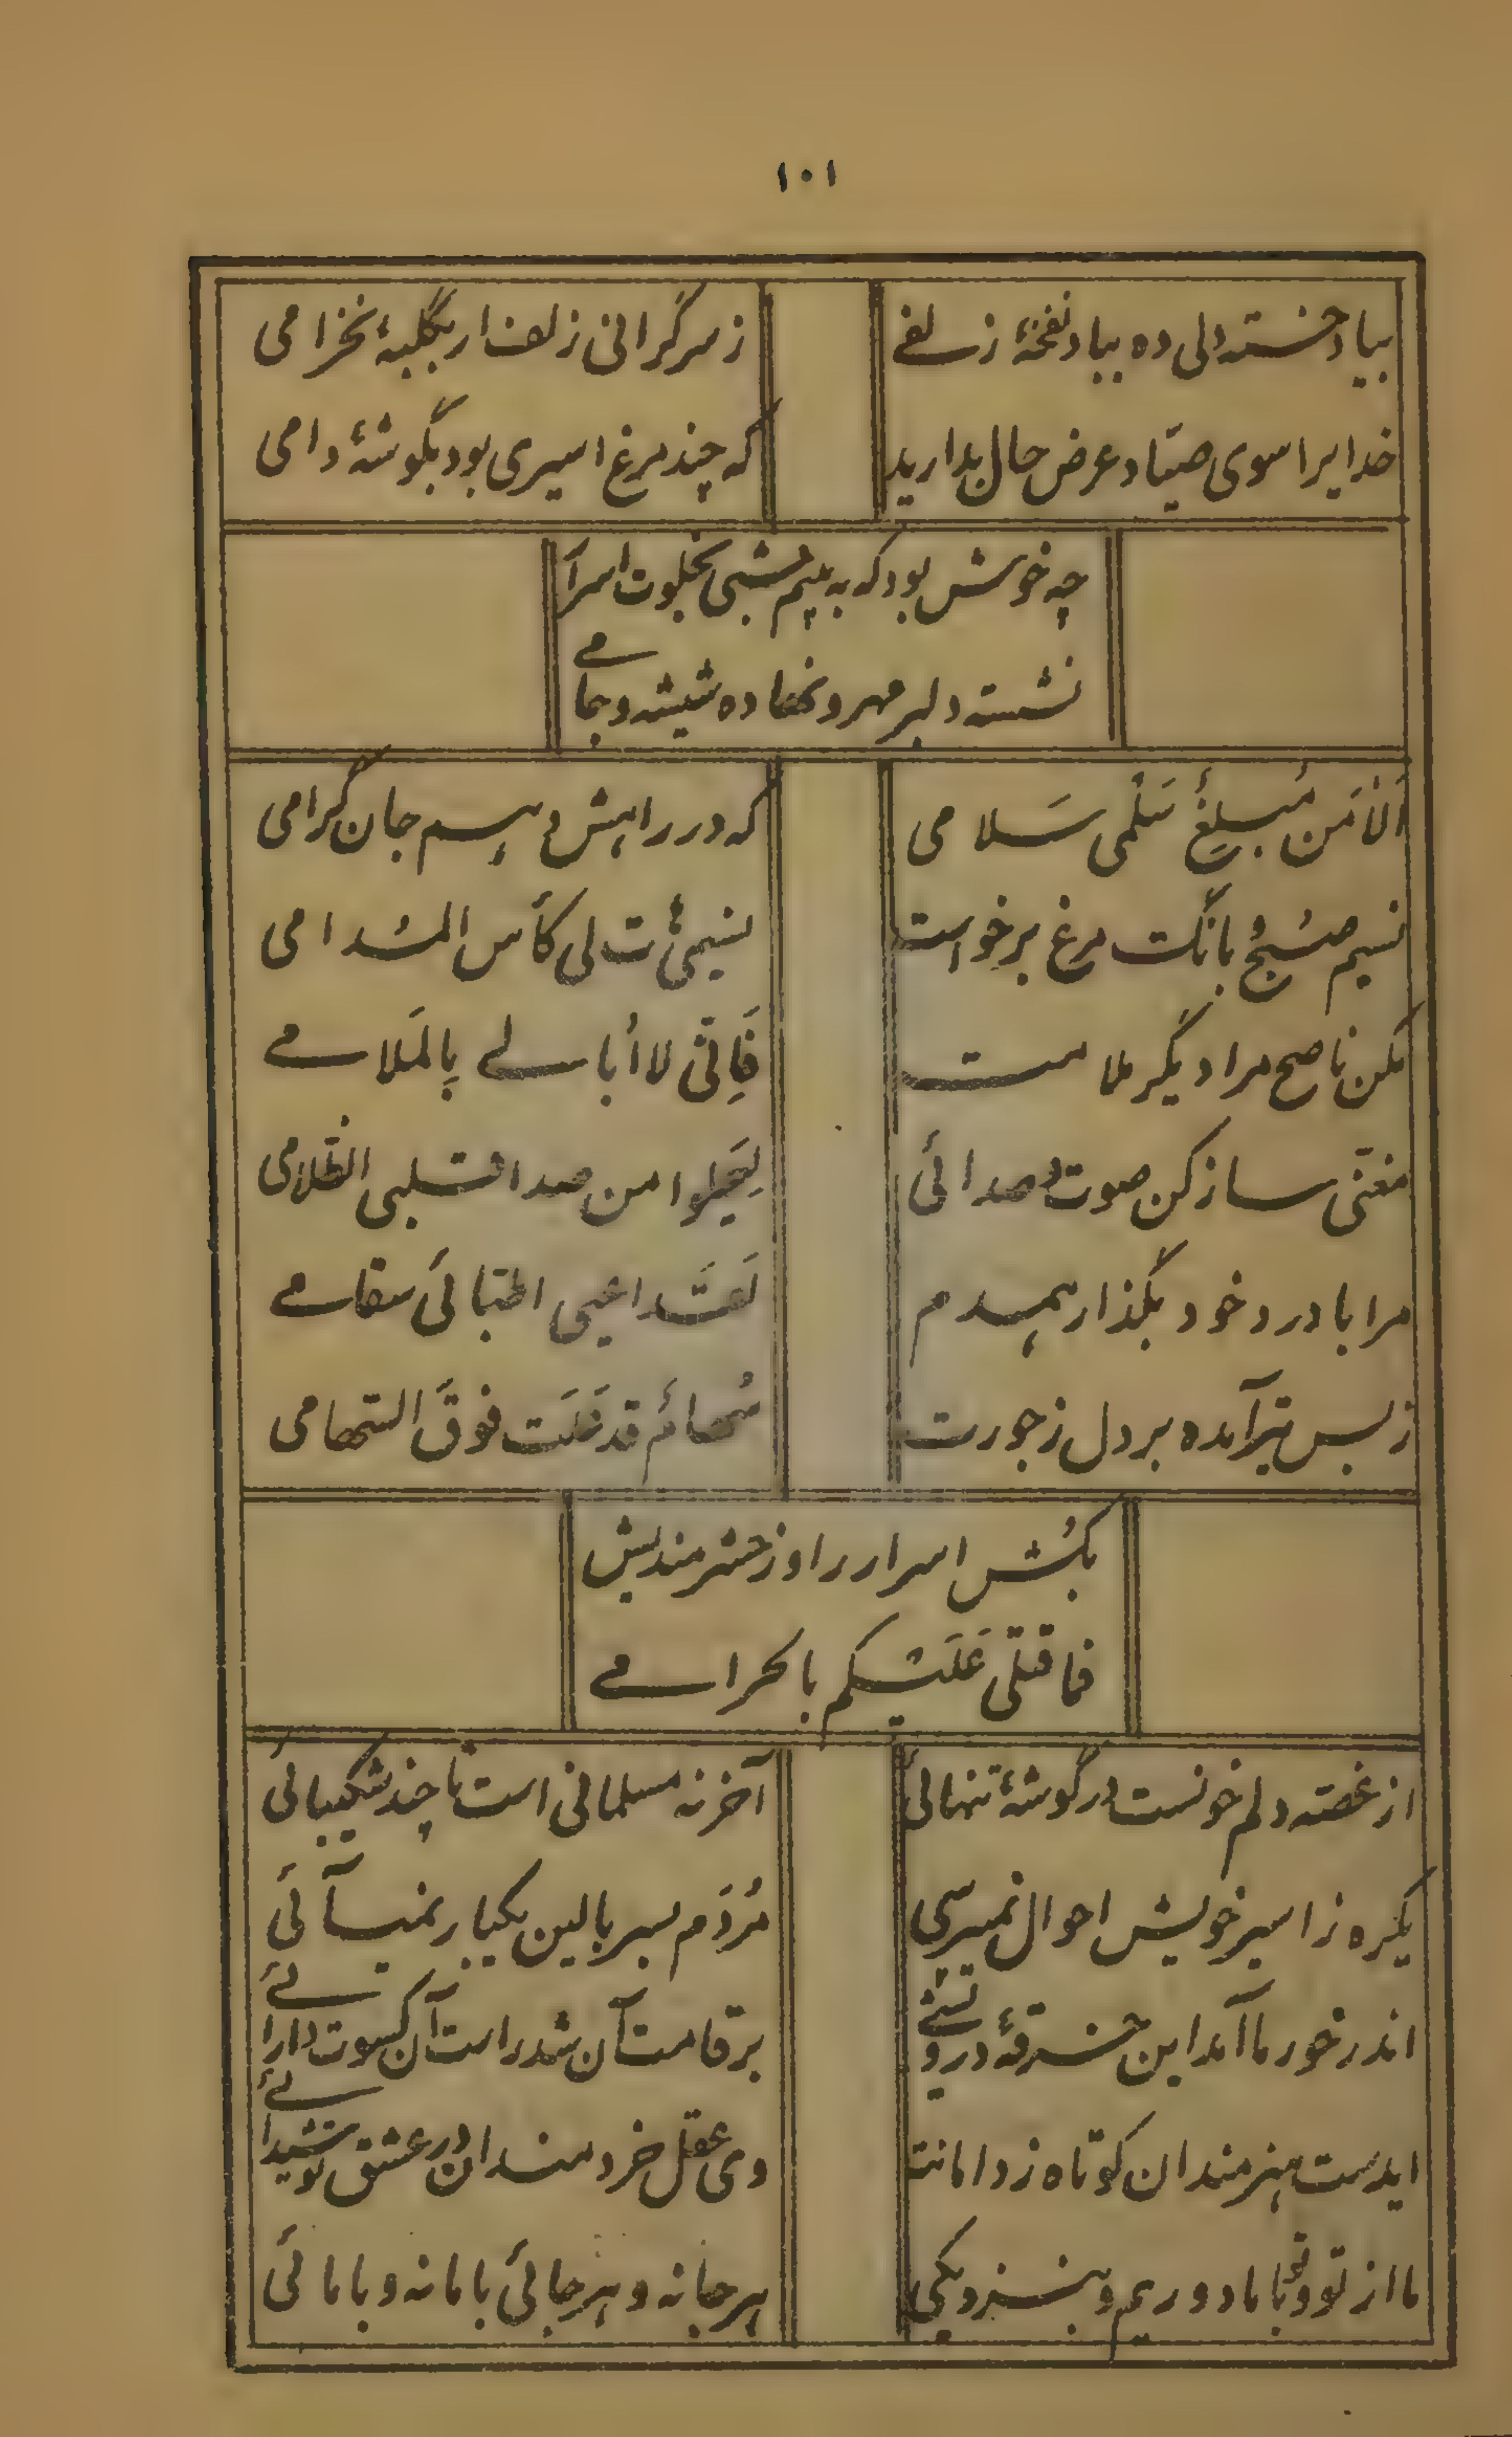 ۱۰۱
بیاد خسته دلی ده بباد نفخهٔ زلفی
ز سرگرانی زلف ار بگلبهٔ نخرامی
خدایرا سوی صیّاد عرض حال بدارید
که چند مرغ اسیری بود بگوشهٔ دامی
چه خوش بود که به بینم شبی بخلوت اسرآر
نشسته دلبر مهرو نهاده شیشه و جامے
اَلا مَن مُبلِغُ سَلْمی سَلامی
که در راهش دهم جان گرامی
نسیم صُبح و بانگ مرغ برخواست
لی کأس المُدامی
مکن ناصح مرا دیگر ملامت
فَاِنّی لا اُبالے بِالمَلامے
مغنّی ساز کن صوت و صدائی
من صدا قلبی الظّلامی
مرا با درد خود بگذار همدم
لَقَد اعیی اطبّائی سقامے
ز بس تیر آمده بر دل ز جورت
سُهائم قد فوقَ السّهامی
بکُش اسرار را و ز حشر مندیش
فما قتلی عَلَیکم بالحرامے
از غصّه دلم خونست در گوشهٔ تنهائی
آخر نه مسلمانی است تا چند شکیبائی
یکره ز اسیر خویش احوال نمیپرسی
مُردَم بسر بالین یکبار نمیآئی
اندر خور ما آمد این خرقهٔ درویشے
بر قامت آن شد راست آن کسوت دارائے
ایدست هنرمندان کوتاه ز دامانت
وی عقل خردمندان در عشق تو شیدائے
ما از تو و تو با ما دوریم و بنزدیکی
هرجا نه و هرجائی با ما نه و با مائی